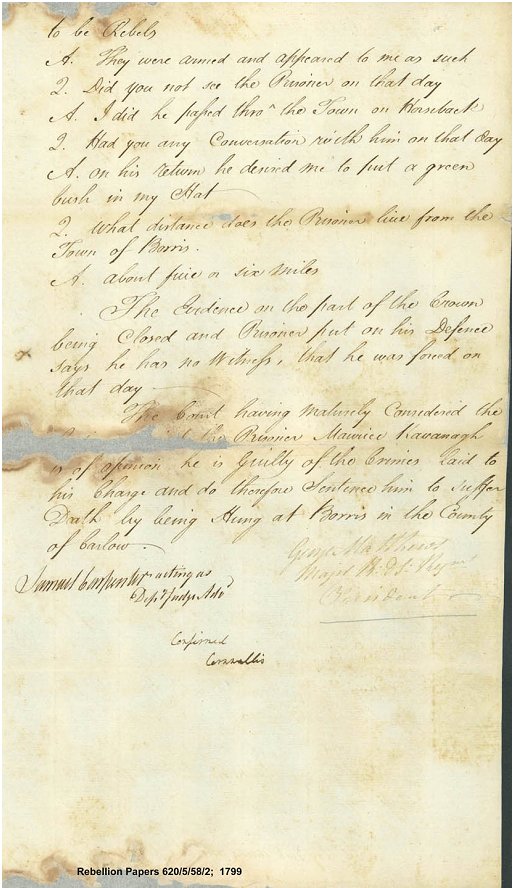 to be Rebels
A. They were armed and appeared to me as such
Q. Did you not see the Prisoner on that day
A. I did he passed thro' the Town on Horseback
Q. Had you any Conversation with him on that day
A. on his return he desired me to put a green
bush in my Hat
Q. What distance does the Prisoner live from the
Town of Borris.
A. about five or six Miles
The Evidence on the part of the Crown
being Closed and Prisoner put on his Defence
says he has no Witness, that he was forced on
that day
The Court having maturely Considered the
the Prisoner Maurice Kavanagh
is of opinion he is Guilty of the Crimes Laid to
his Charge and do therefore Sentence him to suffer
Death by being Hung at Borris in the County
of Carlow.
Samuel Carpenter acting as
Dep.y Judge Adv.
Majr
President
Confirmed
Cornwallis
Rebellion Papers 620/5/58/2; 1799